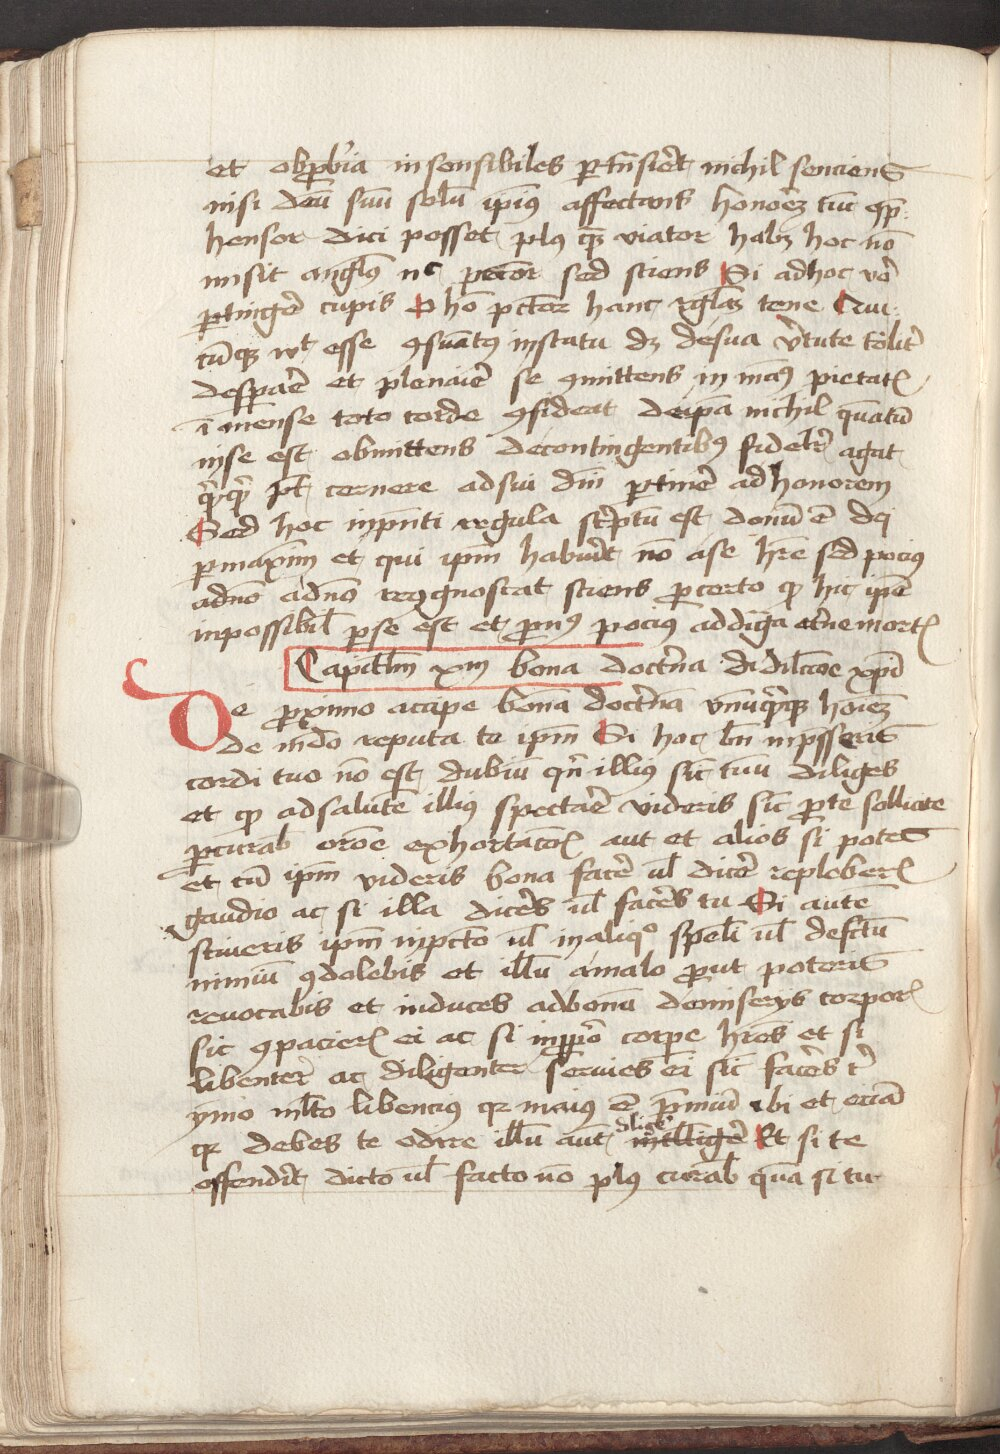 et obprobria insensibiles pertransieret nichil senciens
nisi deum suum solum ipsius affectans honorem tunc comp
hensor dici posset plus quam viator habens hoc non
misit angelus nec peccator sed sciens Si ad hoc vero
pertingere cupis O homo peccator hanc regulam tene Qui
cumque vult esse conservatus in statu debet de sua virtute totaliter
desperare et plenarie se committens in illius pietatis
immense toto corde considerat de ipsa nichil quantum
in se est obmittens de contingentibus fideliter agat
quicquid potest cernere ad sui domini pertinere ad honorem
Sed hoc in presenti regula scriptum est donum est dei
permaximum et qui ipsum habuerit non a se habere sed pocius
ad non ad non recognoscat sciens pro certo quod hic ipse
inpossibile per se est et pronus pocius ad digna eterne mortis
Capitulum xiii bona doctrina di dileccione christi
De proximo accipe bonam doctrinam vnumquemque hominem
de mundo reputa te ipsum Si hoc bene inpresseris
cordi tuo non est dubium quin illius sicut tuum diliges
et quod ad salutem illius spectare videris sicut pro te sollicite
procurabis oracione exhortacionis aut et alios si potes
et cum ipsum videris bona facere vel dicere repleberis
gaudio ac si illa diceres vel faceres tu Si autem
sciueris ipsum in peccato vel in aliquo speciali vel defectum
nimium condolebis et illum a malo prout poteris
reuocabis et induces ad bonam de miseriis corporis
sic compacieris ei ac si in proprio corpore haberes et si
libenter ac diligenter seruies ei sicut faceres tibi
ymo multo libencius quia maius est premium ibi et eciam
quia debes te odire illum autem diligere intelligere Et si te
offenderit dicto vel facto non plus curabis quam si tu